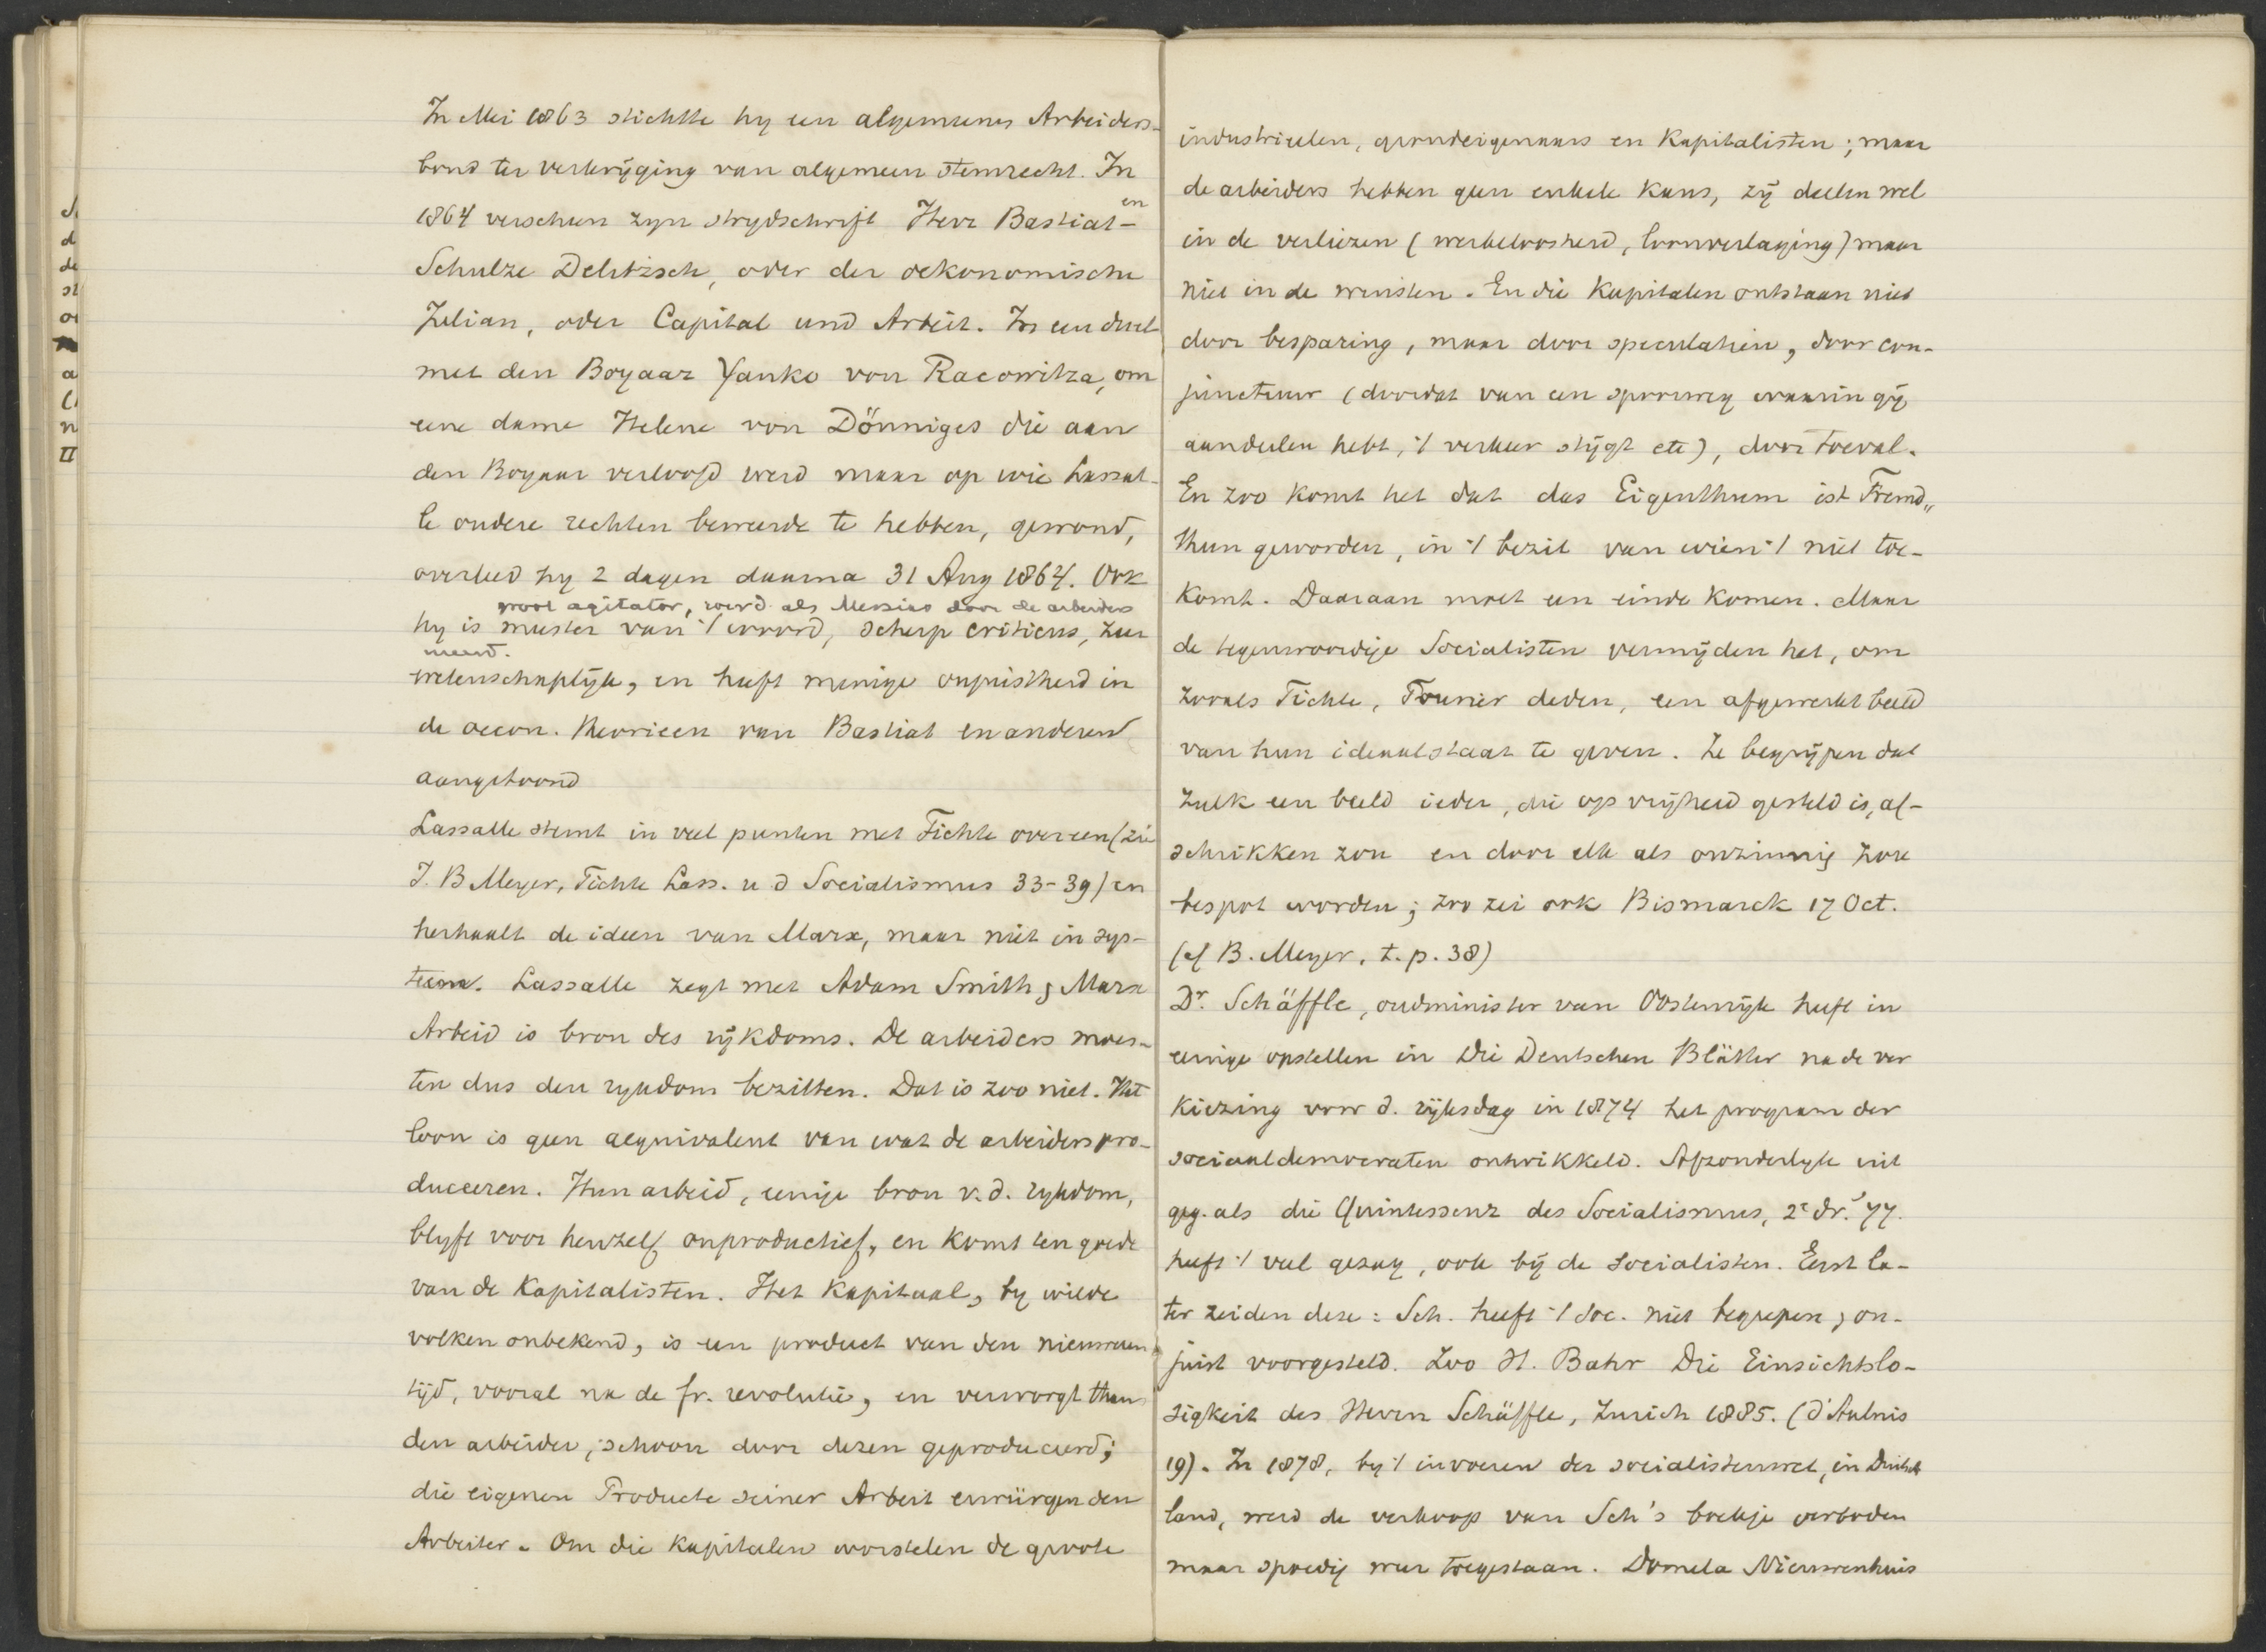 In Mei 1863 stichtte hy een algemeenen Arbeiders-
bond ter verkrijging van algemeen stemrecht. In
1864 verscheen zyn strydschrift Herr Bastiat- en
Schulze Delitzsch, oder der oekonomische
Julian, oder Capital und Arbeit. In een duel
met den Boyaar Yanko von Racowitza, om
eene dame Helene von Dönniges die aan
den Boyaar verloofd werd maar op wie Lassal-
le oudere rechten beweerde te hebben, gewond,
overleed hy 2 dagen daarna 31 Aug 1864. Ook
groot agitator, werd als Messias door de arbeiders
hy is meester van 't woord, scherp criticus, zeer
wetenschaplijk, en heeft menige onjuistheid in
de oecon. theorieen van Bastiat en anderen
aangetoond
Lassalle stemt in veel punten met Fichte overeen (zie
J. B Meyer, Fichte Lass. u d Socialismus 33-39) en
herhaalt de ideen van Marx, maar niet in sys-
teem. Lassalle zegt met Adam Smith & Marx
Arbeid is bron des rijkdoms. De arbeiders moes-
ten dus den rykdom bezitten. Dat is zoo niet. Het
loon is geen aequivalent van wat de arbeiders pro-
duceeren. Hun arbeid, eenige bron v. d. rykdom,
blyft voor henzelf onproductief, en komt ten goede
van de Kapitalisten. Het Kapitaal, by wilde
volken onbekend, is een product van den nieuweren
tijd, vooral na de fr. revolutie, en verworgt thans
den arbeider, schoon door dezen geproduceerd;
die eigenen Producte seiner Arbeit erwürgen den
Arbeiter. Om die kapitalen worstelen de groote
industrieelen, grondeigenaars en Kapitalisten; maar
de arbeiders hebben geen enkele kans, zij deelen wel
in de verliezen (werkeloosheid, loonverlaging) maar
niet in de winsten. En die Kapitalen ontstaan niet
door besparing, maar door speculatien, door con-
junctuur (doordat van een spoorweg waarin gij
aandeelen hebt, 't verkeer stijgt etc), door toeval.
En zoo komt het dat das Eigenthum ist Fremd„
thum geworden, in 't bezit van wien 't niet toe-
komt. Daaraan moet een einde komen. Maar
de tegenwoordige Socialisten vermijden het, om
zooals Fichte, Fourier deden, een afgewerkt beeld
van hun ideaalstaat te geven. Ze begrijpen dat
zulk een beeld ieder, die op vrijheid gesteld is, af-
schrikken zou en door elk als onzinnig zou
bespot worden; zoo zei ook Bismarck 17 Oct.
(cf B. Meyer, t. p. 38)
Dr. Schäffle, oudminister van Oostenrijk heeft in
eenige opstellen in Die Deutschen Blätter na de ver
kiezing voor d. rijksdag in 1874 het program der
sociaaldemocraten ontwikkeld. Afzonderlyk uit
geg. als die Quintessenz des Socialismus, 2e dr. '77.
heeft 't veel gezag, ook bij de socialisten. Eerst la-
ter zeiden deze: Sch. heeft 't soc. niet begrepen, on-
juist voorgesteld. Zoo H. Bahr Die Einsichtslo-
sigkeit des Herrn Schäffle, Zurich 1885. (d'Aulnis
19). In 1878, by 't invoeren der socialistenwet, in Duitsch
land, werd de verkoop van Sch's boekje verboden
maar spoedig weer toegestaan. Domela Nieuwenhuis